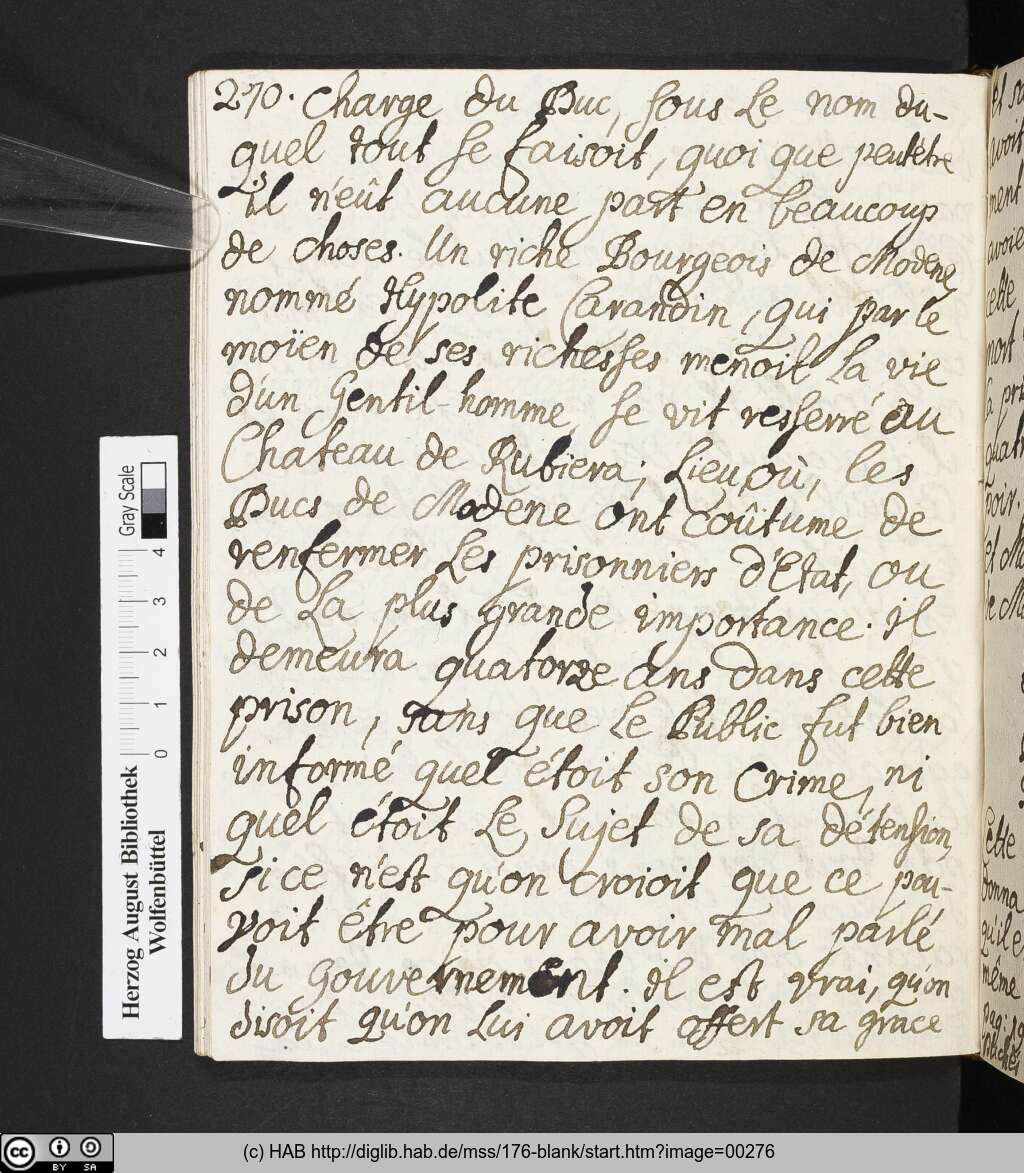 270. Charge du Duc, sous Le nom du-
quel tout se faisoit, quoi que peutêtre
Qu'il n'eût aucune part en beaucoup
de choses. Un riche Bourgeois de Modene,
nommé Hypolite Carandin, qui par le
moïen de ses richesses menoit La vie
d'un Gentil-homme, se vit resserré au
Chateau de Rubiera; Lieu, où, les
Ducs de Modene ont coûtume de
renfermer Les prisonniers d'Etat, ou
de La plus grande importance. il
demeura quatorze ans dans cette
prison, sans que Le Public fut bien
informé quel étoit son Crime, ni
quel étoit Le Sujet de sa détension,
si ce n'est qu'on croioit que ce pou-
voit être pour avoir mal parlé
du Gouvernement. il est vrai, qu'on
disoit qu'on Lui avoit offert sa grace
Herzog August Bibliothek
Wolfenbüttel
0 1 2 3 4
Gray Scale
cc BY SA
(c) HAB http://diglib.hab.de/mss/176-blank/start.htm?image=00276